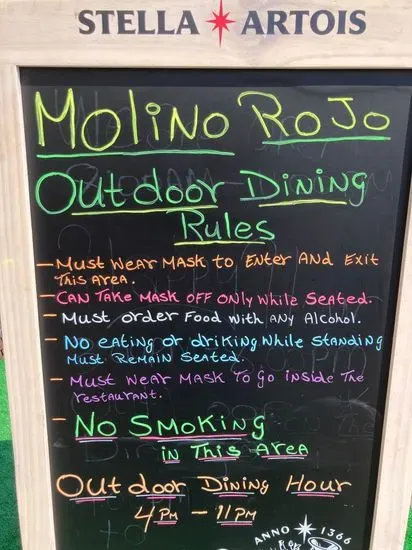 STELLA ARTOIS
MOLINO ROJO
Outdoor Dining
Rules
- Must wear MASK to ENTER AND Exit
THis AREA.
- CAN TAKE MASK OFF ONLY WHILE SEATED.
- Must order Food with ANy Alcohol.
- NO eating or driking While STANDING
Must REMAIN SEATED.
- Must wear MASK To go inside The
restaurant.
- NO SMOKING
in This AREA
Outdoor Dining Hour
4PM - 11PM
ANNO 1366